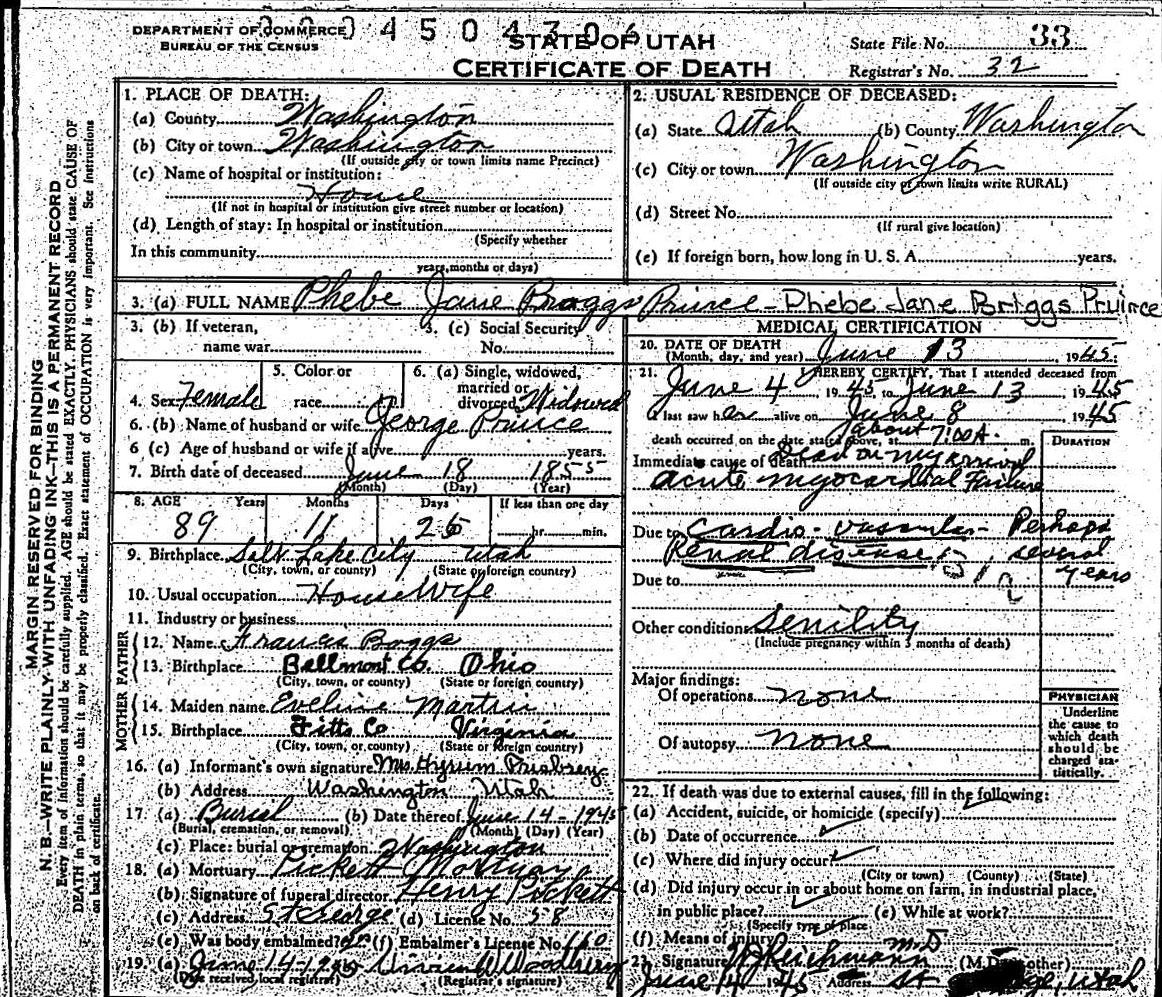 DEPARTMENT OF COMMERCE
BUREAU OF THE CENSUS
STATE OF UTAH
CERTIFICATE OF DEATH
State File No. 33
Registrar's No. 32
MARGIN RESERVED FOR BINDING
N. B.—WRITE PLAINLY WITH UNFADING INK—THIS IS A PERMANENT RECORD
Every item of information should be carefully supplied. AGE should be stated EXACTLY. PHYSICIANS should state CAUSE OF
DEATH in plain terms, so that it may be properly classified. Exact statement of OCCUPATION is very important. See instructions
on back of certificate.
1. PLACE OF DEATH:
(a) County Washington
(b) City or town Washington
(If outside city or town limits name Precinct)
(c) Name of hospital or institution:
House
(If not in hospital or institution give street number or location)
(d) Length of stay: In hospital or institution
(Specify whether
In this community
years, months or days)
2. USUAL RESIDENCE OF DECEASED:
(a) State Utah (b) County Washington
(c) City or town Washington
(If outside city or town limits write RURAL)
(d) Street No.
(If rural give location)
(e) If foreign born, how long in U. S. A. years.
3. (a) FULL NAME Phebe Jane Boggs Prince - Phebe Jane Briggs Pruirce
3. (b) If veteran,
name war
3. (c) Social Security
No.
4. Sex Female
5. Color or
race
6. (a) Single, widowed,
married or
divorced Widowed
6. (b) Name of husband or wife George Prince
6 (c) Age of husband or wife if alive years.
7. Birth date of deceased June 18 1855
(Month) (Day) (Year)
8. AGE Years Months Days If less than one day
89 11 25 hr. min.
9. Birthplace Salt Lake City Utah
(City, town, or county) (State or foreign country)
10. Usual occupation House Wife
11. Industry or business
FATHER
12. Name Francis Boggs
13. Birthplace Bellmont Co. Ohio
(City, town, or county) (State or foreign country)
MOTHER
14. Maiden name Eveline Martin
15. Birthplace Fitts Co Virginia
(City, town, or county) (State or foreign country)
16. (a) Informant's own signature Mrs. Hyrum Prisbrey
(b) Address Washington Utah
17. (a) Burial (b) Date thereof June 14-1945
(Burial, cremation, or removal) (Month) (Day) (Year)
(c) Place: burial or cremation Washington
18. (a) Mortuary Pickett Mortuary
(b) Signature of funeral director Henry Pickett
(c) Address St George (d) License No. 58
(e) Was body embalmed? (f) Embalmer's License No. 160
19. (a) June 14-1945
(Date received local registrar) (Registrar's signature)
MEDICAL CERTIFICATION
20. DATE OF DEATH
(Month, day, and year) June 13, 1945
21. I HEREBY CERTIFY, That I attended deceased from
June 4, 1945, to June 13, 1945
I last saw her alive on June 8 1945
death occurred on the date stated above, at about 7:00 A. m.
DURATION
Immediate cause of death Dead on my arrival
acute myocardial Failure
Due to Cardio-vascular- Perhaps
Renal disease several
years
Due to
Other conditions Senility
(Include pregnancy within 3 months of death)
Major findings:
Of operations none
Of autopsy none
PHYSICIAN
Underline
the cause to
which death
should be
charged sta-
tistically.
22. If death was due to external causes, fill in the following:
(a) Accident, suicide, or homicide (specify)
(b) Date of occurrence
(c) Where did injury occur?
(City or town) (County) (State)
(d) Did injury occur in or about home on farm, in industrial place,
in public place? (e) While at work?
(Specify type of place
(f) Means of injury
23. Signature M.D (M.D. or other)
June 14 1945 Address St Utah